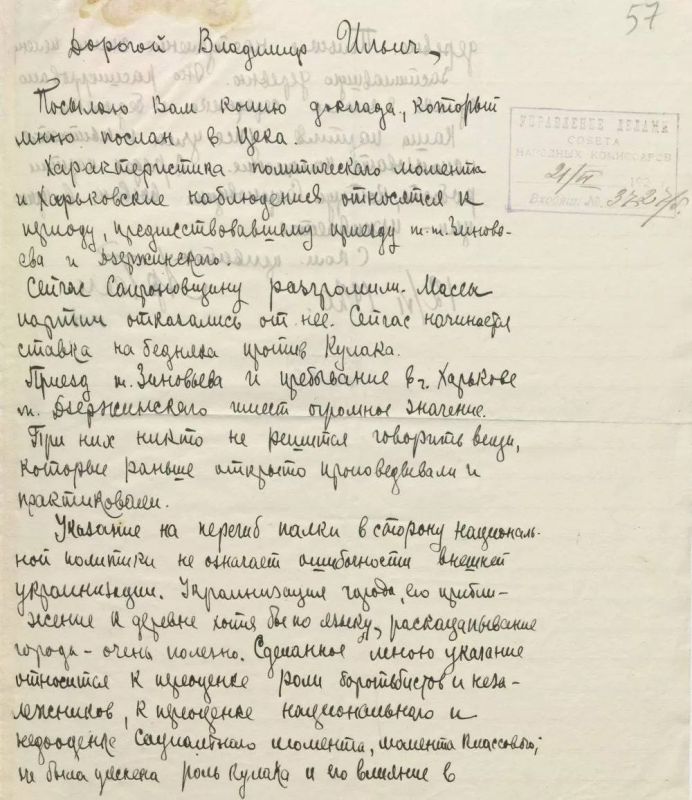 57
Дорогой Владимир Ильич,
УПРАВЛЕНИЕ ДЕЛАМИ
СОВЕТА
НАРОДНЫХ КОМИССАРОВ
21/VI 192
Входящ. №
Посылаю Вам копию доклада, который
мною послан в Цека.
Характеристика политического момента
и Харьковские наблюдения относятся к
периоду, предшествовавшему приезду т.т. Зиновь-
ева и Дзержинского.
Сейчас Сапроновщину разгромили. Массы
партии отказались от нее. Сейчас начинается
ставка на бедняка против Кулака.
Приезд т. Зиновьева и пребывание в г. Харькове
т. Дзержинского имеет огромное значение.
При них никто не решится говорить вещи,
которые раньше открыто проповедывали и
практиковали.
Указание на перегиб палки в сторону националь-
ной политики не означает ошибочности внешней
украинизации. Украинизация города, его прибли-
жение к деревне хотя бы по языку, раскацапывание
города - очень полезно. Сделанное мною указание
относится к переоценке роли боротьбистов и неза-
лежников, к переоценке национального и
недооценке социального момента, момента классового;
не была учтена роль кулака и его влияние в